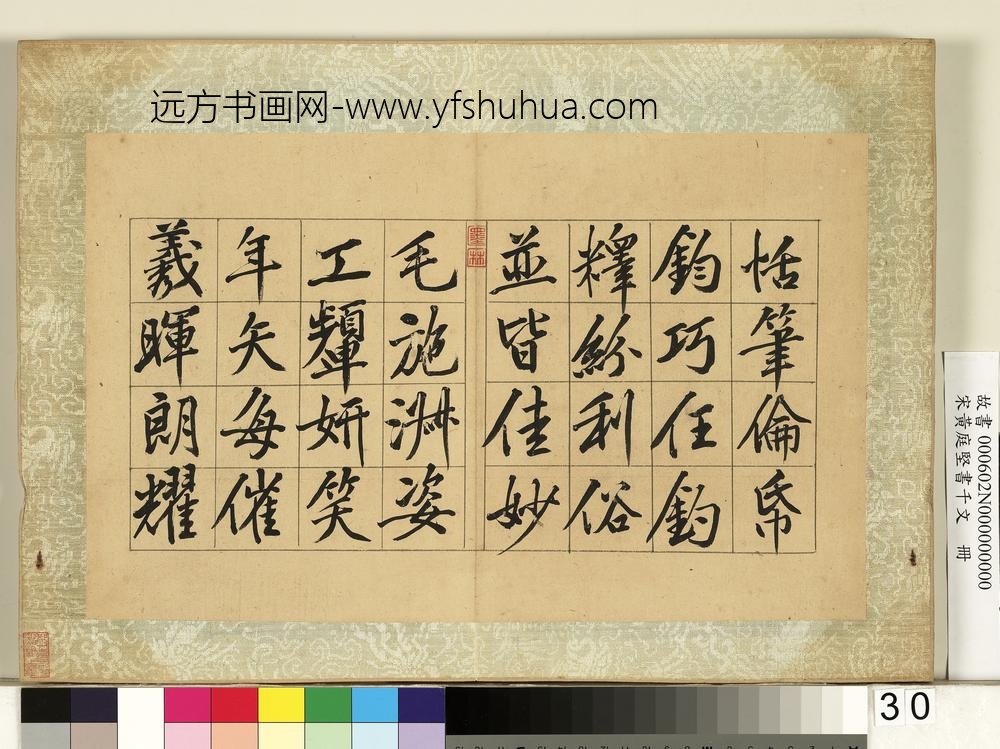 远方书画网-www.yfshuhua.com
恬筆倫帋
鈞巧任釣
釋紛利俗
並皆佳妙
墨林
毛施淑姿
工顰妍笑
年矢每催
羲暉朗耀
故書 000602N000000000
宋黃庭堅書千文 冊
30